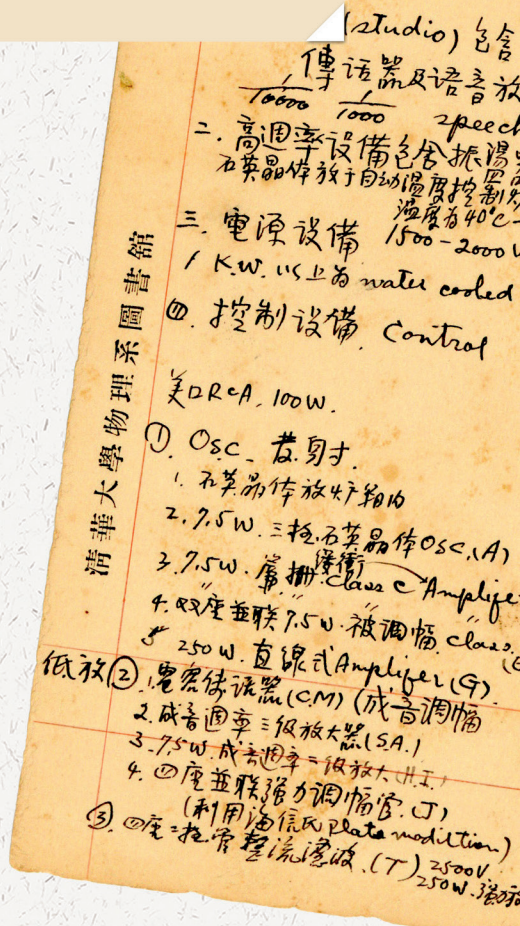 (studio) 包含
傳话器及语音放
1/10000 1/1000 speech
二. 高週率设備包含振湯
石英晶体放于自动温度控制
温度为40°C
三. 電源设備 1500-2000
1 K.W. 以上为 water cooled
四. 控制设備. Control
清華大學物理系圖書舘
美 RCA. 100W.
① OSC.
1. 石英晶体放炉箱内
2. 7.5W. 三极石英晶体OSC.(A)
3. 7.5W. 簾栅 缓衝 Class C Amplife
4. 双座並联 7.5W. 被调幅. Class.
5 250W. 直線式Amplifer(G).
低放 ② 1. 電容传话器(C.M) (成音调幅
2. 成音週率三级放大器(S.A.)
3. 7.5W. 成音週率二级放大(H.I.)
4. 四座並联强力调幅管.(J)
(利用海信氏 plate modiltion)
③. 四座二极管整流濾波.(T) 2500V
250W.